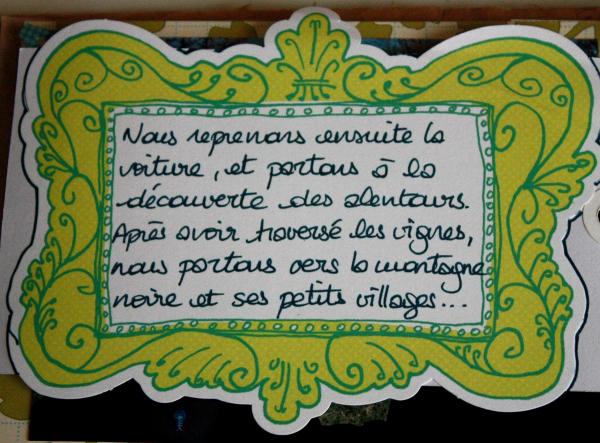 Nous reprenons ensuite la
voiture, et partons à la
découverte des alentours.
Après avoir traversé les vignes,
nous partons vers la montagne
noire et ses petits villages...